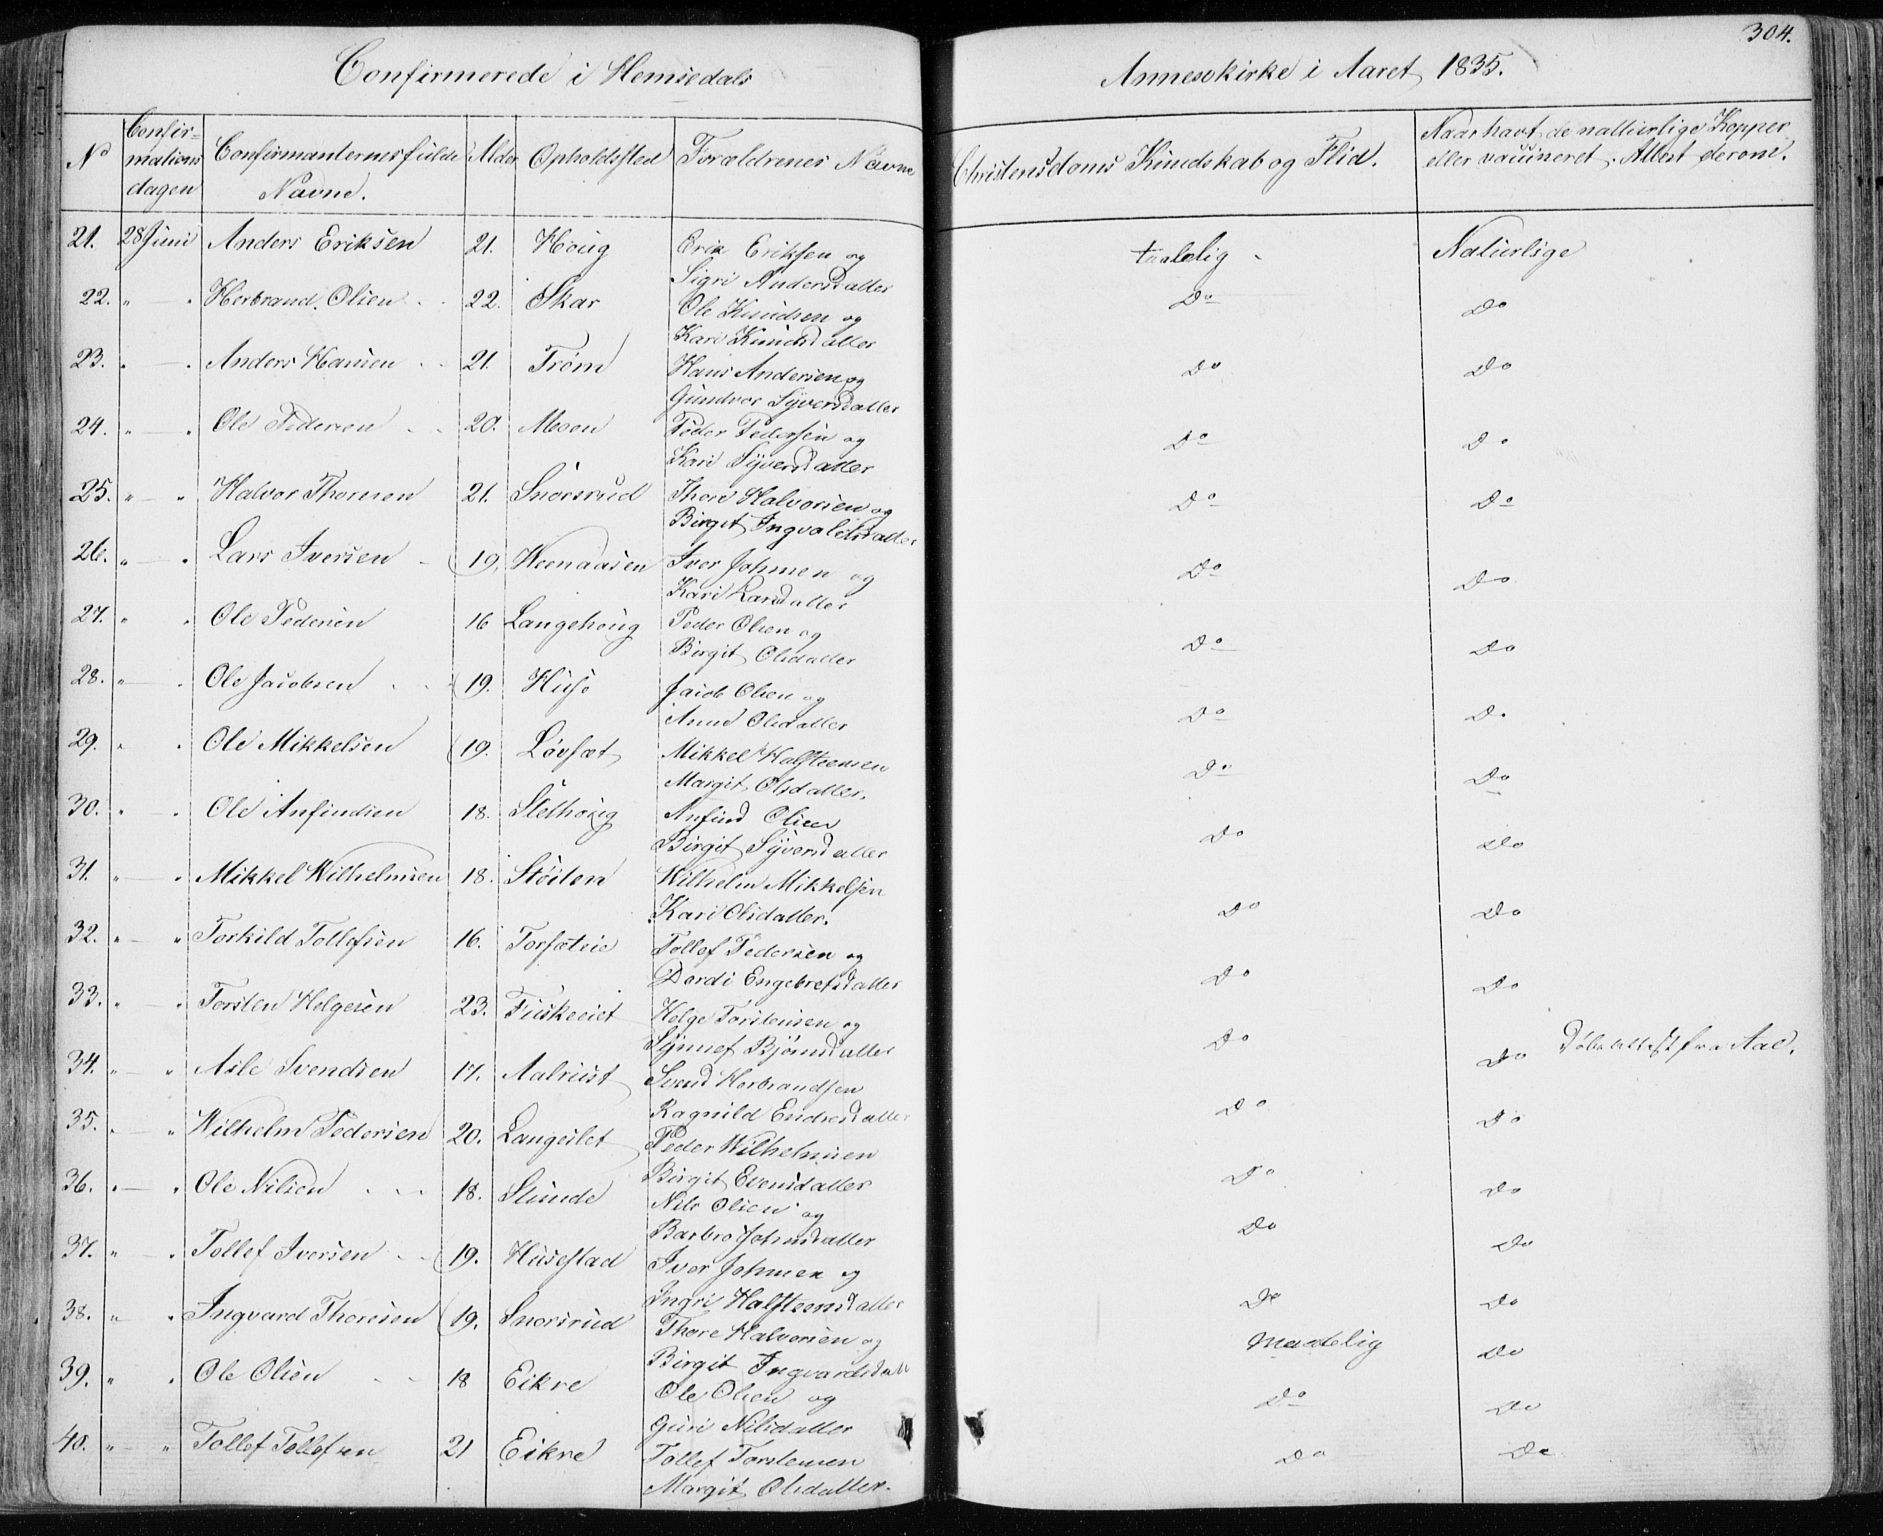 304.
Confirmerede i Hemsedals Annexkirke i Aaret 1835.
No Confir= Confirmanternes fulde Alder Opholdsted Forældrenes Navne Christendoms Kundskab og Flid. Naar havt de naturlige Kopper
mations Navne. eller vaccineret. Attest derom.
dagen
21. 28 Juni Anders Eriksen 21. Houg Eric Eriksen og taalelig Naturlige
Sigri Andersdatter
22. " — " Herbrand Olsen 22. Skar Ole Knudsen og Do Do
Kari Knudsdatter
23. " — " Anders Hansen 21. Trøm Hans Andersen og Do Do
Gundvor Syversdatter
24. " — " Ole Pedersen 20. Moen Peder Pedersen og Do Do
Kari Syversdatter
25. " — " Halvor Thoresen 21. Snorsrud Thore Halvorsen og Do Do
Birgit Ingvaldsdatter
26. " — " Lars Iversen 19. Iver Johnsen og Do Do
Kari Larsdatter
27. " — " Ole Pedersen 16 Langehoug Peder Olsen og Do Do
Birgit Olsdatter
28. " — " Ole Jacobsen 19. Huse Jacob Olsen og Do Do
Anne Olsdatter
29. " — " Ole Mikkelsen 19. Løvsæt Mikkel Halfteensen Do Do
Margit Olsdatter.
30. " — " Ole Anfindsen 18. Slethoug Anfind Olsen Do Do
Birgit Syversdatter
31. " — " Mikkel Wilhelmsen 18. Støiten Wilhelm Mikkelsen Do Do
Kari Olsdatter.
32. " — " Torkild Tollefsen 16. Torsæteie Tollef Pedersen og Do Do
Dordi Engebretsdatter
33. " — " Torsten Helgesen 23. Fiskeeiet Helge Torstensen og Do Do Døbeattest fra Aal.
Synnef Bjørnsdatter
34. " — " Asle Svendsen 17. Aalrust Svend Herbrandsen Do Do
Ragnild Endresdatter
35. " — " Wilhelm Pedersen 20. Langeslet Peder Wilhelmsen Do Do
Birgit Evensdatter
36. " — " Ole Nilsen 18. Slunde Nils Olsen og Do Do
Barbro Johnsdatter
37. " — " Tollef Iversen 19. Husestad Iver Johnsen og Do Do
Ingri Halfteensdatter
38. " — " Ingvard Thoresen 19. Snorsrud Thore Halvorsen og Maadelig Do
Birgit Ingvardsdatt
39. " — " Ole Olsen 18 Eikre Ole Olsen og Do Do
Guri Nilsdatter
40. " — " Tollef Tollefsen 21 Eikre Tollef Torstensen Do Do
Margit Olsdatter.